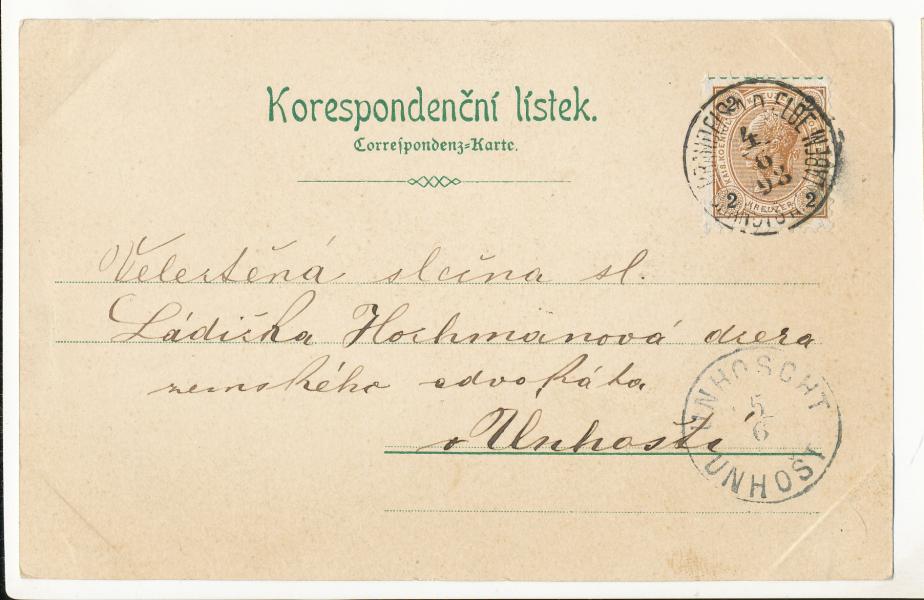 Korespondenční lístek.
Correspondenz=Karte.
2 2
KREUZER
4
6
98
Velectěná slečna sl.
Ládička Hochmanová dcera
zemského advokáta
v Unhošti
UNHOSCHT
5
6
UNHOŠŤ